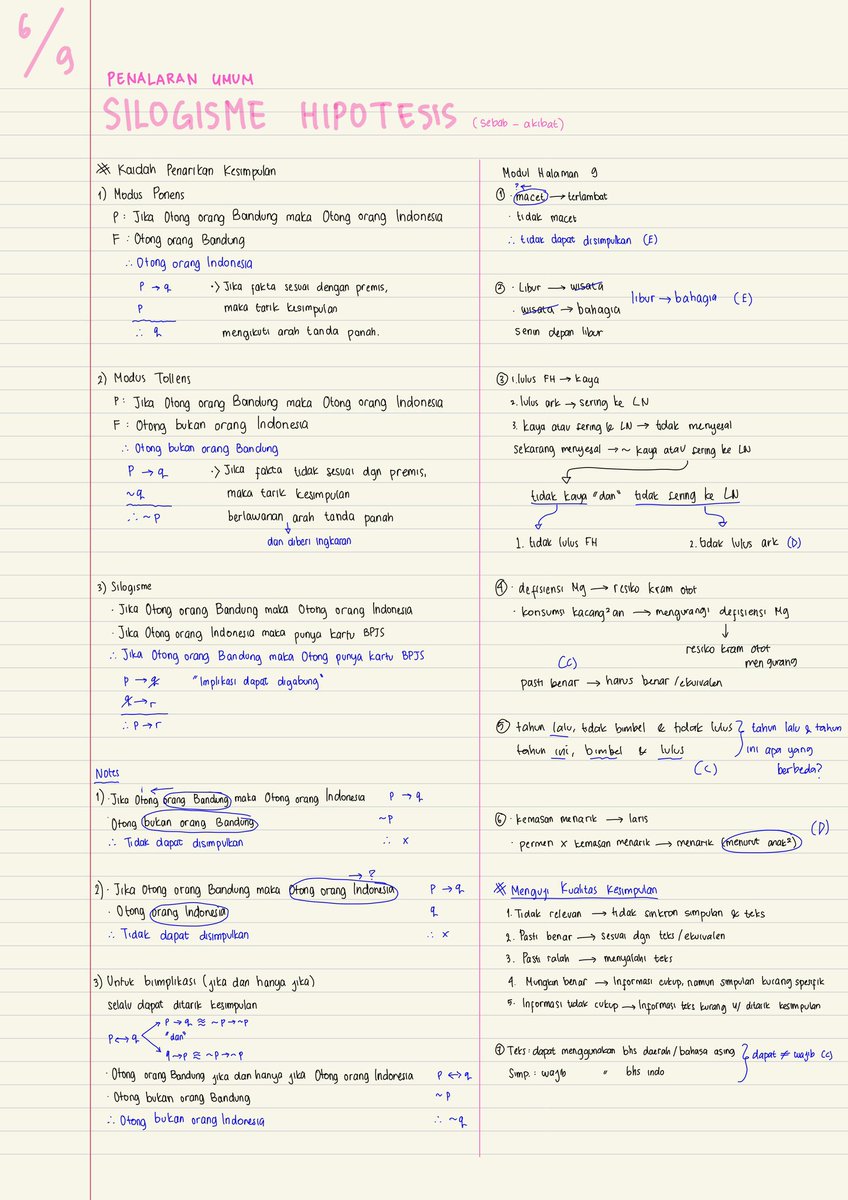 6/9
PENALARAN UMUM
SILOGISME HIPOTESIS (sebab - akibat)
※ Kaidah Penarikan Kesimpulan
1) Modus Ponens
P : Jika Otong orang Bandung maka Otong orang Indonesia
F : Otong orang Bandung
∴ Otong orang Indonesia
P → q ·> Jika fakta sesuai dengan premis,
P maka tarik kesimpulan
∴ q mengikuti arah tanda panah.
2) Modus Tollens
P : Jika Otong orang Bandung maka Otong orang Indonesia
F : Otong bukan orang Indonesia
∴ Otong bukan orang Bandung
P → q ·> Jika fakta tidak sesuai dgn premis,
~q maka tarik kesimpulan
∴ ~P berlawanan arah tanda panah
↓
dan diberi ingkaran
3) Silogisme
· Jika Otong orang Bandung maka Otong orang Indonesia
· Jika Otong orang Indonesia maka punya kartu BPJS
∴ Jika Otong orang Bandung maka Otong punya kartu BPJS
P → q "Implikasi dapat digabung"
q → r
∴ P → r
Notes
1) · Jika Otong orang Bandung maka Otong orang Indonesia P → q
· Otong bukan orang Bandung ~P
∴ Tidak dapat disimpulkan ∴ x
→ ?
2) · Jika Otong orang Bandung maka Otong orang Indonesia P → q
· Otong orang Indonesia q
∴ Tidak dapat disimpulkan ∴ x
3) Untuk biimplikasi (jika dan hanya jika)
selalu dapat ditarik kesimpulan
P → q ≅ ~P → ~P
P ↔ q "dan"
q → P ≅ ~P → ~P
· Otong orang Bandung jika dan hanya jika Otong orang Indonesia P ↔ q
· Otong bukan orang Bandung ~P
∴ Otong bukan orang Indonesia ∴ ~q
Modul Halaman 9
? ←
① · macet → terlambat
· tidak macet
∴ tidak dapat disimpulkan (E)
② · Libur → wisata
· wisata → bahagia libur → bahagia (E)
Senin depan libur
③ 1. lulus FH → kaya
2. lulus ark → sering ke LN
3. kaya atau sering ke LN → tidak menyesal
Sekarang menyesal → ~ kaya atau sering ke LN
tidak kaya "dan" tidak sering ke LN
1. tidak lulus FH 2. tidak lulus ark (D)
④ · defisiensi Mg → resiko kram otot
· konsumsi kacang²an → mengurangi defisiensi Mg
↓
resiko kram otot
mengurang
(C)
pasti benar → harus benar / ekuivalen
⑤ tahun lalu, tidak bimbel & tidak lulus } tahun lalu & tahun
tahun ini, bimbel & lulus ini apa yang
(C) berbeda?
⑥ · kemasan menarik → laris
· permen x kemasan menarik → menarik (menurut anak²) (D)
※ Menguji Kualitas Kesimpulan
1. Tidak relevan → tidak sinkron simpulan & teks
2. Pasti benar → sesuai dgn teks / ekuivalen
3. Pasti salah → menyalahi teks
4. Mungkin benar → Informasi cukup, namun simpulan kurang spesifik
5. Informasi tidak cukup → Informasi teks kurang u/ ditarik kesimpulan
⑦ Teks : dapat menggunakan bhs daerah / bahasa asing } dapat ≠ wajib (C)
Simp. : wajib " bhs indo